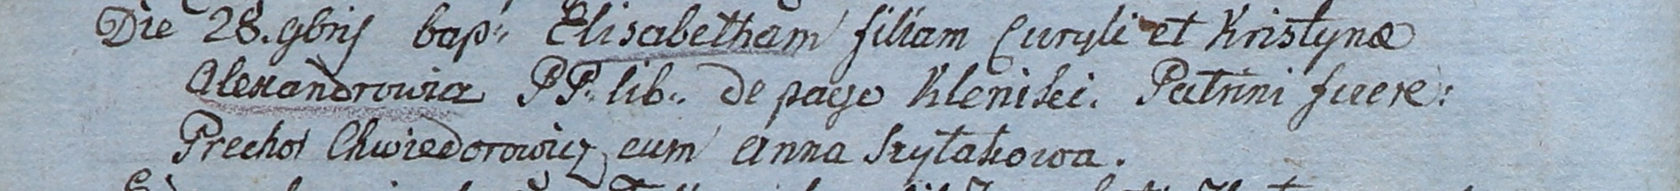 Die 28. 9bris bap: Elisabetham filiam Curyli et Kristynæ
Alexandrowicz PP. lib: de pago Kleniski. Patrini fuere:
Prechor Chwiedorowicz cum Anna Szytakowa.